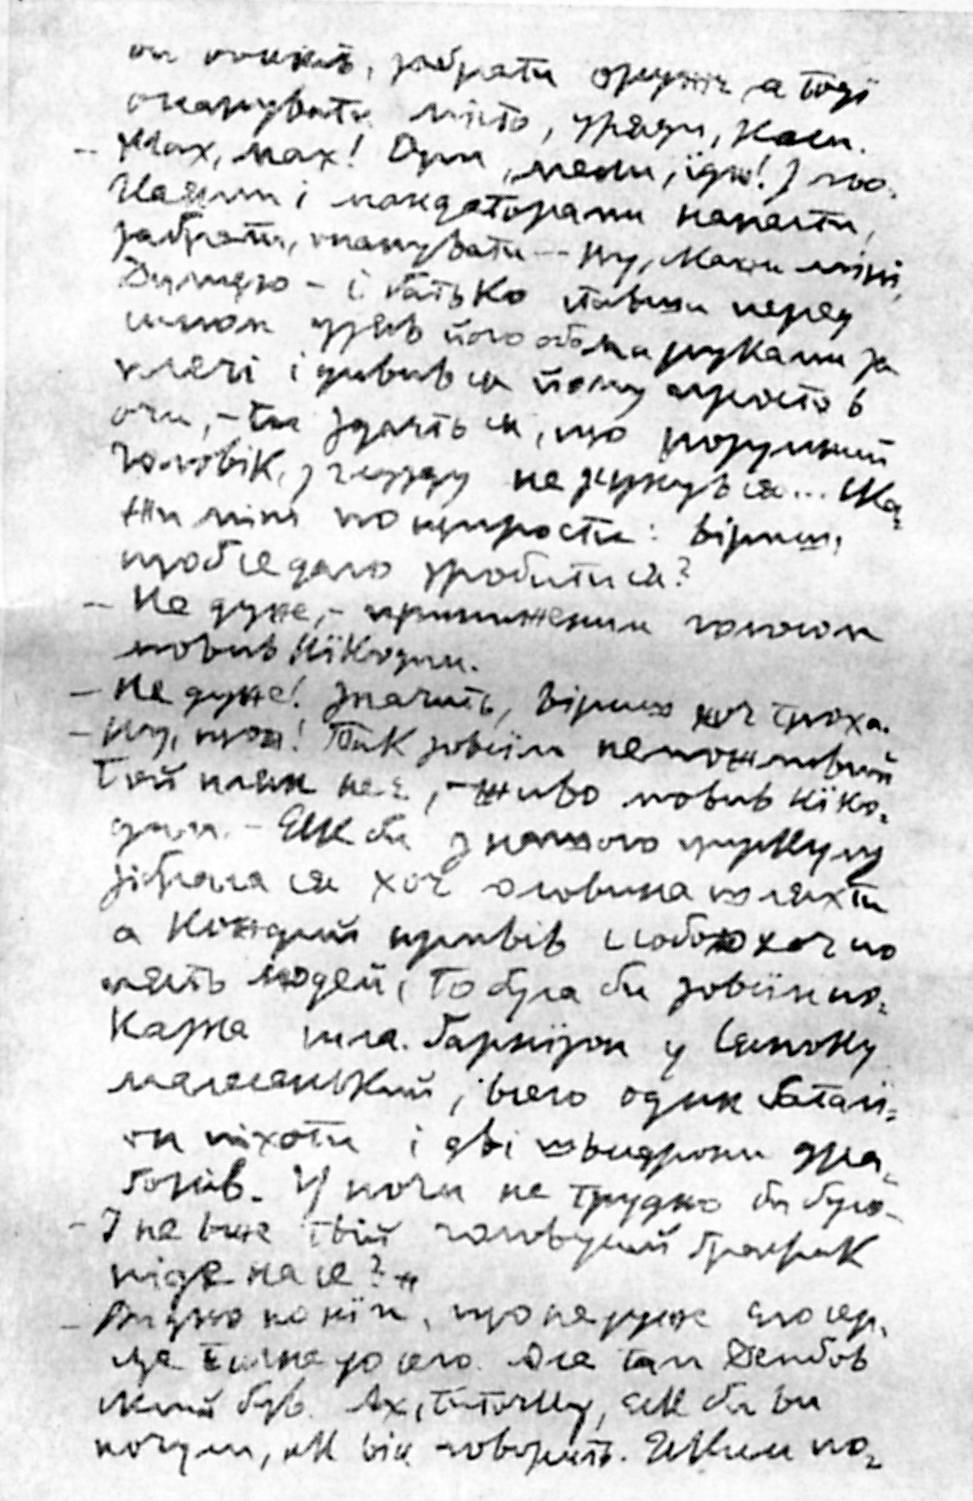 забрати оружє, а тоді
опанувати місто, уряди, каси.
— Мах, мах! Души, мели, їдж! І по-
наєпи і мандаторами напасти,
забрати, опанувати — ну, скажи мині,
Думцю — і батько ставши перед
сином узяв його обома руками за
плечі і дививъ ся йому просто в
очи, — ти здаєть ся, що розумний
чоловік, з глузду не зсунувъ ся... Ска-
жи міні по щирости: віриш,
щоб се дало зробити ся?
— Не дуже, — приниженим голосом
мовив Нїкодим.
— Не дуже! Значить, віриш хоч троха.
— Ну, щож! Так зовсїм неможливий
той плян не є, — живо мовив Нїко-
дим. — Єсли би з нашого циркулу
зібрала ся хоч половина шляхти
а кождий привів с собою хоч по
пять людей, то була би зовсїм по-
кажна сила. Гарнїзон у Сяноку
малесенький, всего один баталї-
он піхоти і дві швадрони дра-
гонів. У ночи не трудно би було.
— І не вже твій голов братчик
піде на се?
— Видно по нїм, що не дуже его сер-
це тягне до сего. Але там Дембов-
ский був. Ах, таточку, єсли би ви
почули, як він говорить. Яким по-